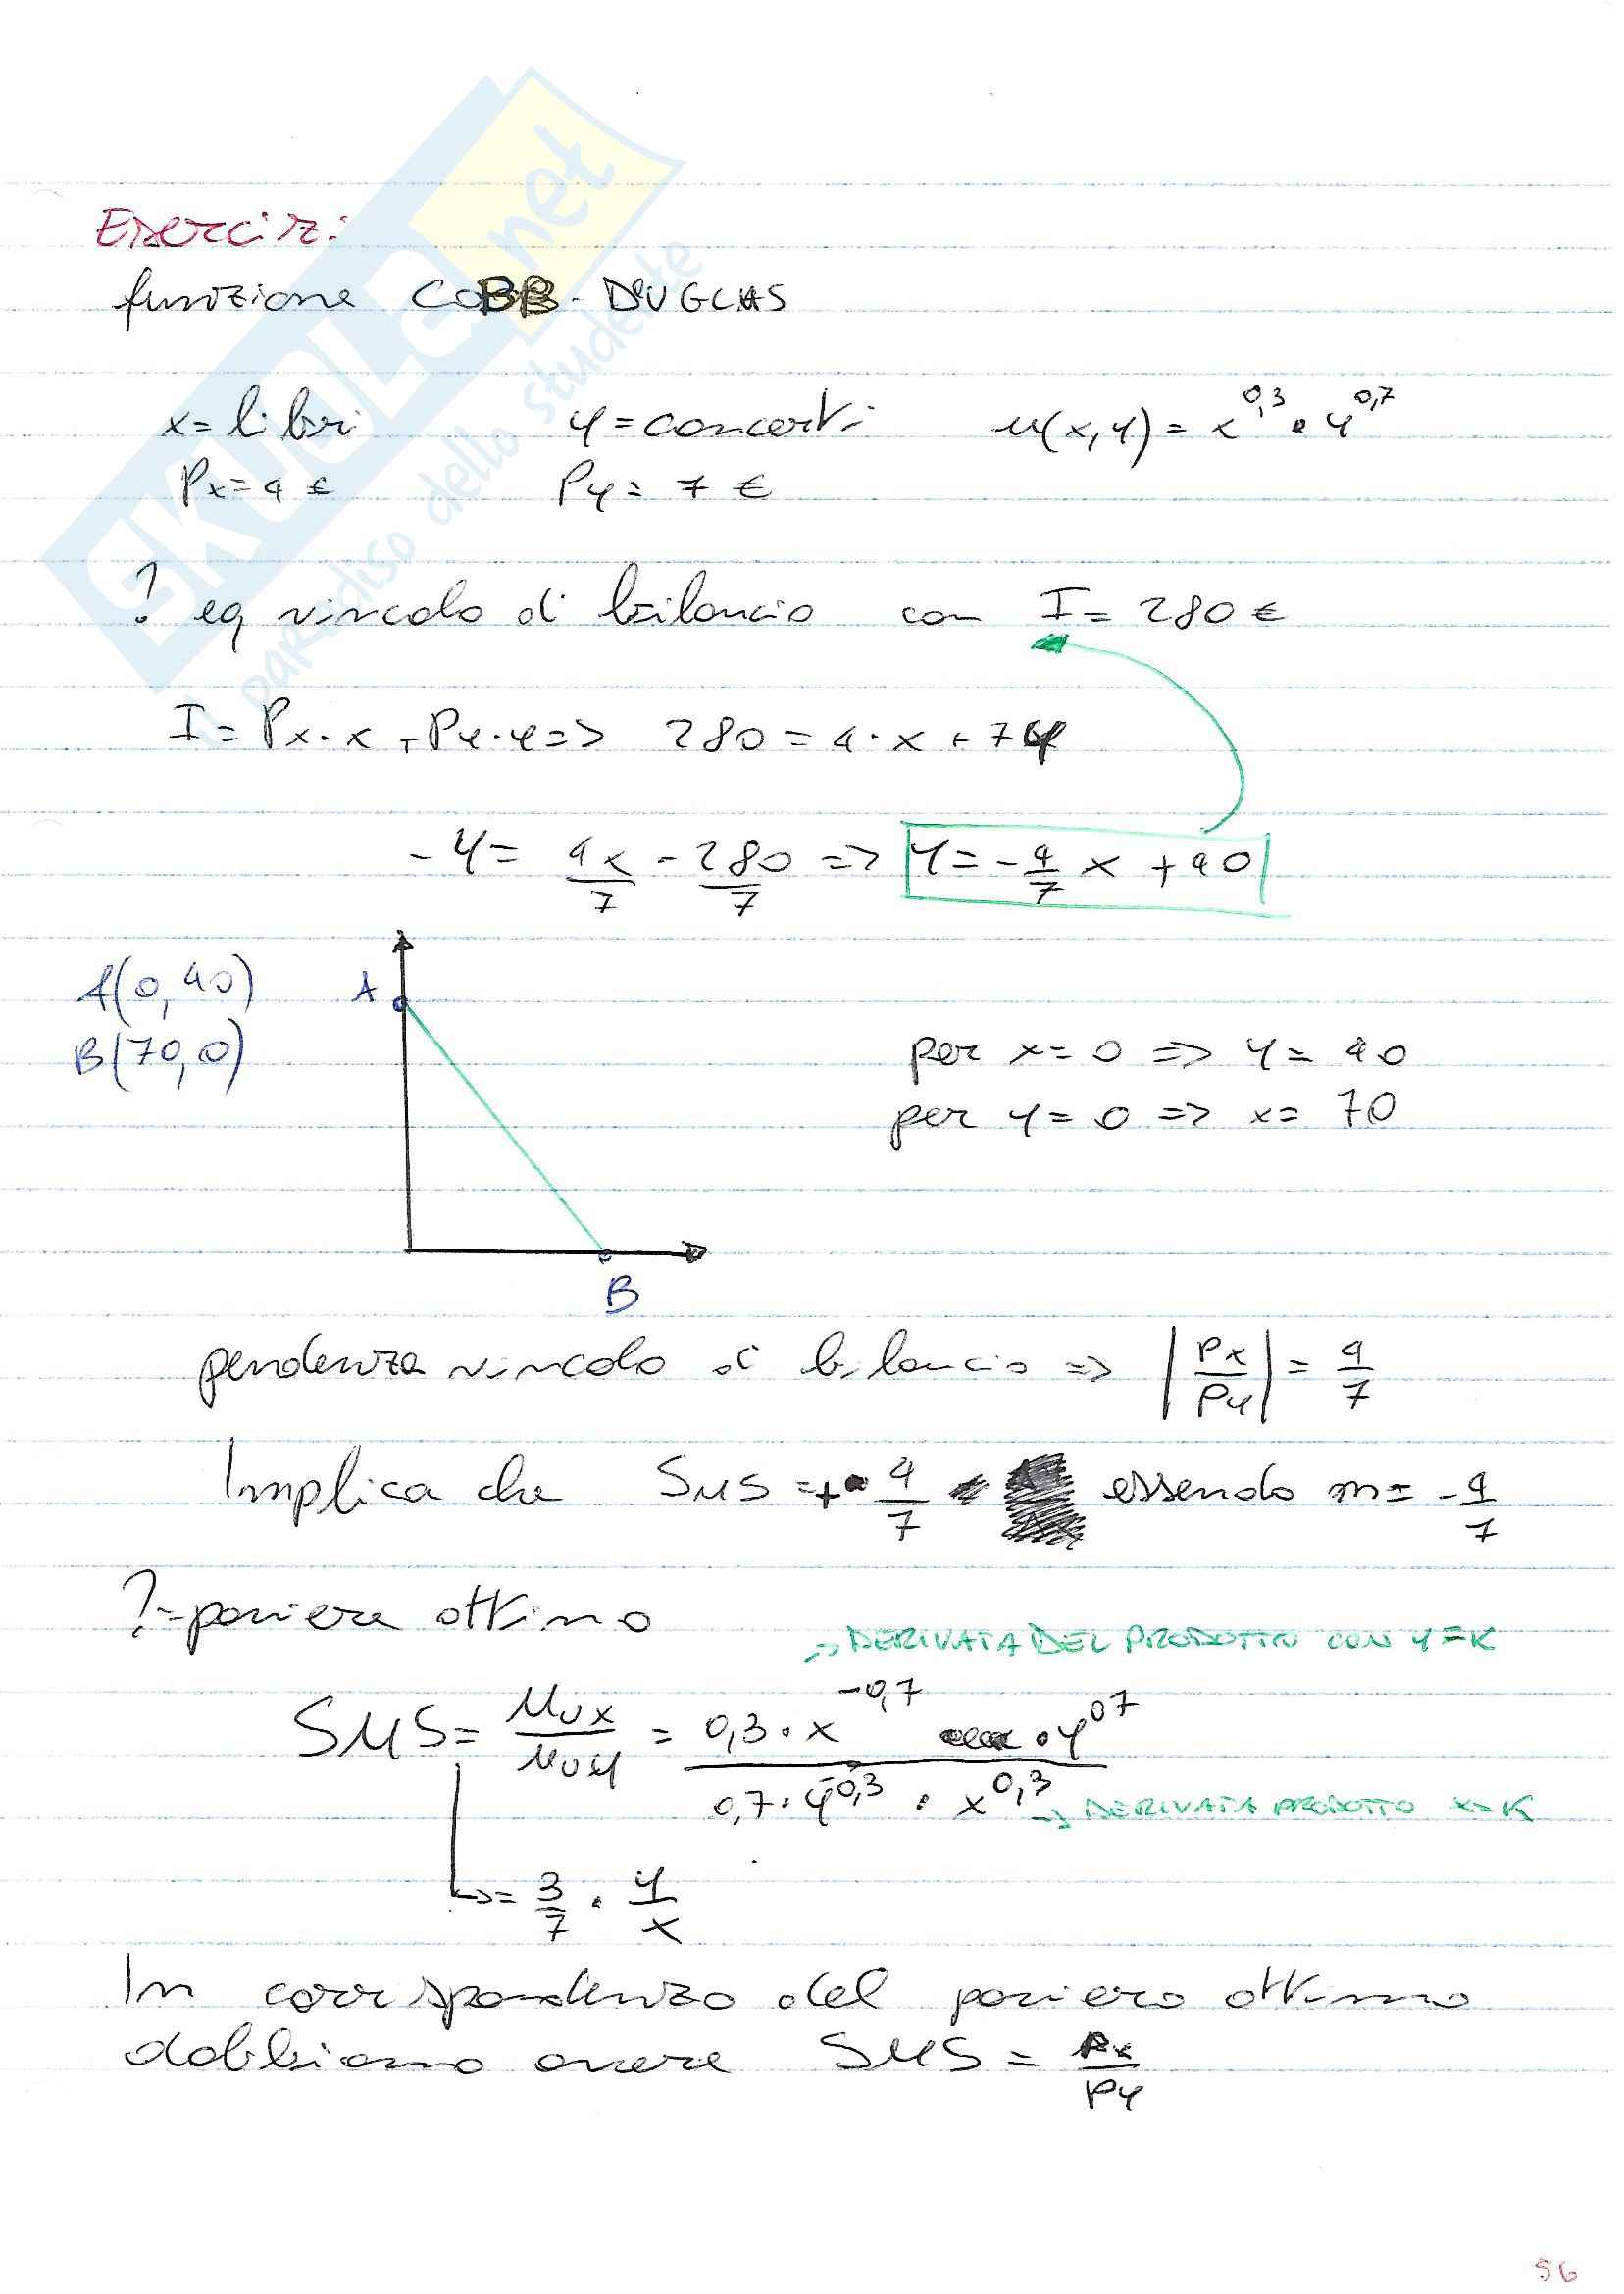 Esercizi
funzione COBB-DOUGLAS
x = libri y = concerti u(x,y) = x^0,3 · y^0,7
Px = 4 € Py = 7 €
? eq vincolo di bilancio con I = 280 €
I = Px · x + Py · y => 280 = 4 · x + 7y
- y = 4x/7 - 280/7 => y = - 4/7 x + 40
A(0, 40) A
B(70, 0)
per x = 0 => y = 40
per y = 0 => x = 70
B
pendenza vincolo di bilancio => |Px/Py| = 4/7
Implica che SMS = + 4/7 essendo m = - 4/7
? - paniere ottimo
-> DERIVATA DEL PRODOTTO CON y = K
SMS = MUx/MUy = 0,3 · x^-0,7 · y^0,7 / 0,7 · y^-0,3 · x^0,3
-> DERIVATA PRODOTTO x = K
-> = 3/7 · y/x
In corrispondenza del paniere ottimo
dobbiamo avere SMS = Px/Py
56
SKUOLA.net
il paradiso dello studente